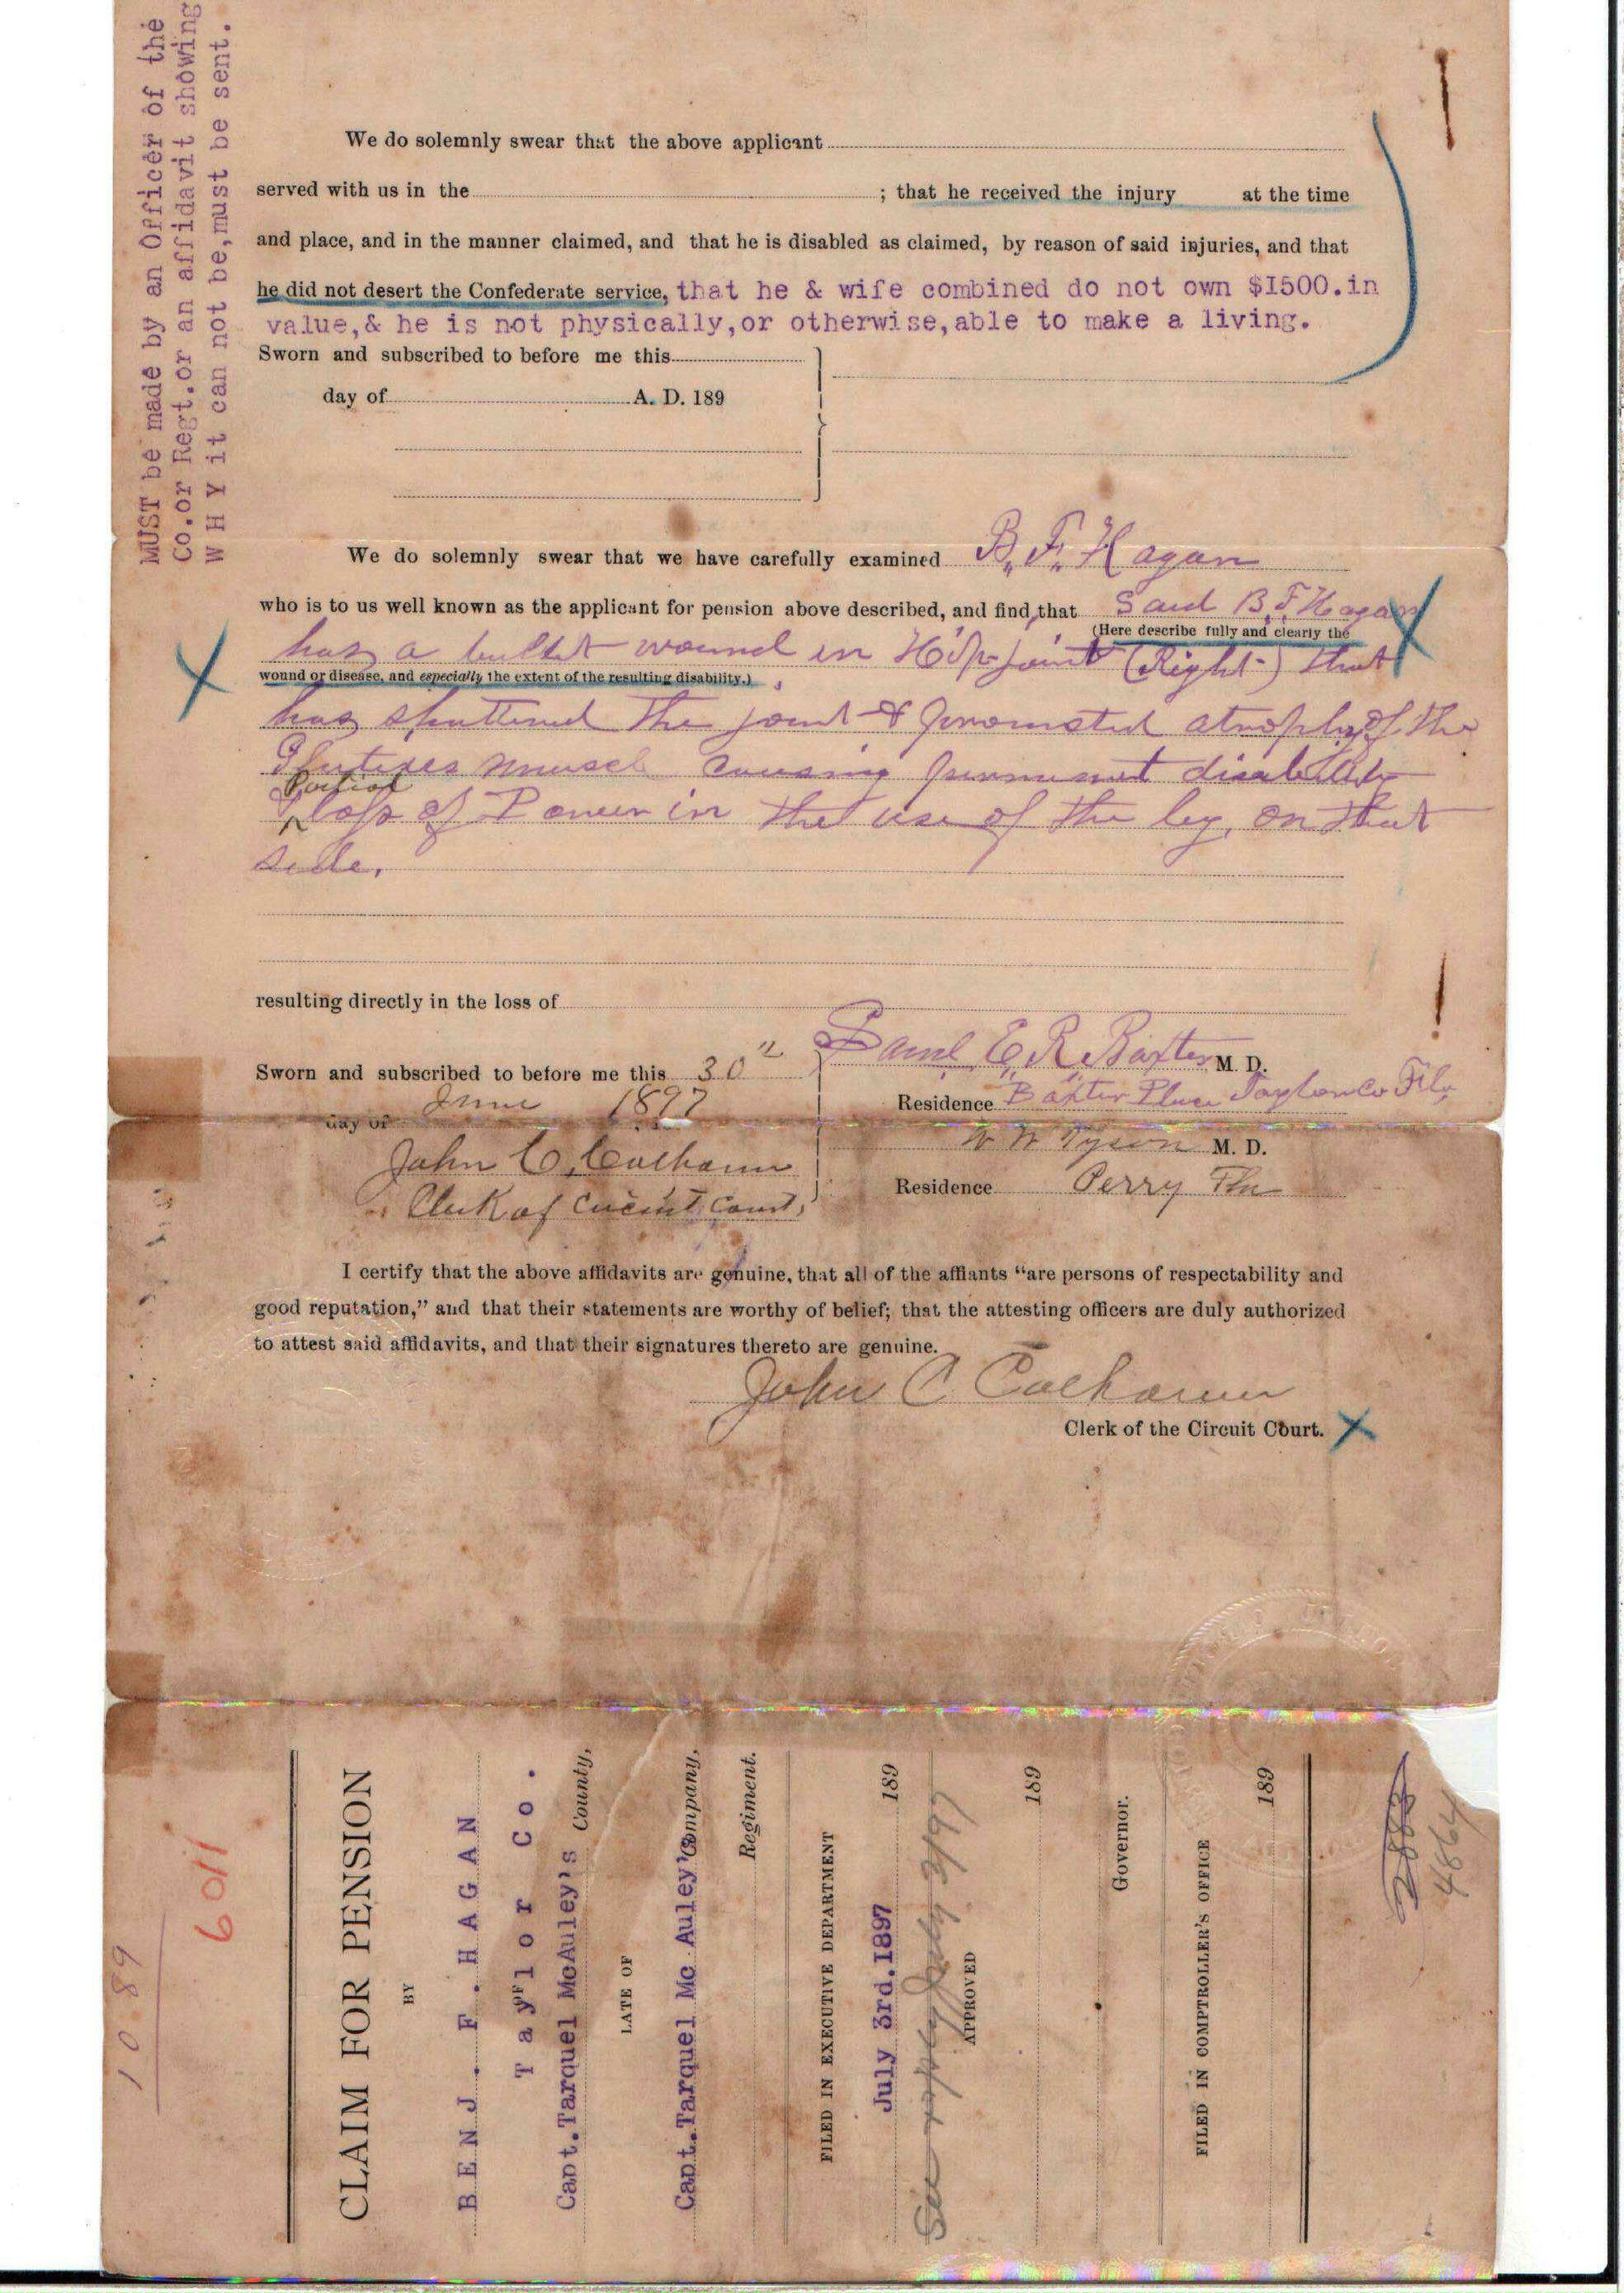 MUST be made by an Officer of the
Co.or Regt.or an affidavit showing
W H Y it can not be,must be sent.
We do solemnly swear that the above applicant
served with us in the ; that he received the injury at the time
and place, and in the manner claimed, and that he is disabled as claimed, by reason of said injuries, and that
he did not desert the Confederate service, that he & wife combined do not own $I500.in
value,& he is not physically,or otherwise,able to make a living.
Sworn and subscribed to before me this
day of A. D. 189
We do solemnly swear that we have carefully examined B. F. Hagan
who is to us well known as the applicant for pension above described, and find, that Said B. F. Hagan
(Here describe fully and clearly the
has a bullet wound in Hip joint (Right) that
wound or disease, and especially the extent of the resulting disability.)
has shattered the joint & promoted atrophy of the
Gluteus muscle causing permanent disability
Partial
& loss of Power in the use of the leg, on that
side.
resulting directly in the loss of
Saml. E. R. Baxter M. D.
Sworn and subscribed to before me this 30"
Residence Baxter Place Taylor Co Fla
day of June 1897
W W Tyson M. D.
John C. Calhoun
Residence Perry Fla
Clerk of Circuit Court.
I certify that the above affidavits are genuine, that all of the affiants “are persons of respectability and
good reputation,” and that their statements are worthy of belief; that the attesting officers are duly authorized
to attest said affidavits, and that their signatures thereto are genuine.
John C Calhoun
Clerk of the Circuit Court.
1089
6011
CLAIM FOR PENSION
BY
BENJ. F. HAGAN
Taylor Co.
Capt.Tarquel McAuley's County,
LATE OF
Capt.Tarquel Mc Auley's Company,
Regiment.
FILED IN EXECUTIVE DEPARTMENT
July 3rd.1897 189
See July 3/97
APPROVED
189
Governor.
FILED IN COMPTROLLER'S OFFICE
189
4864